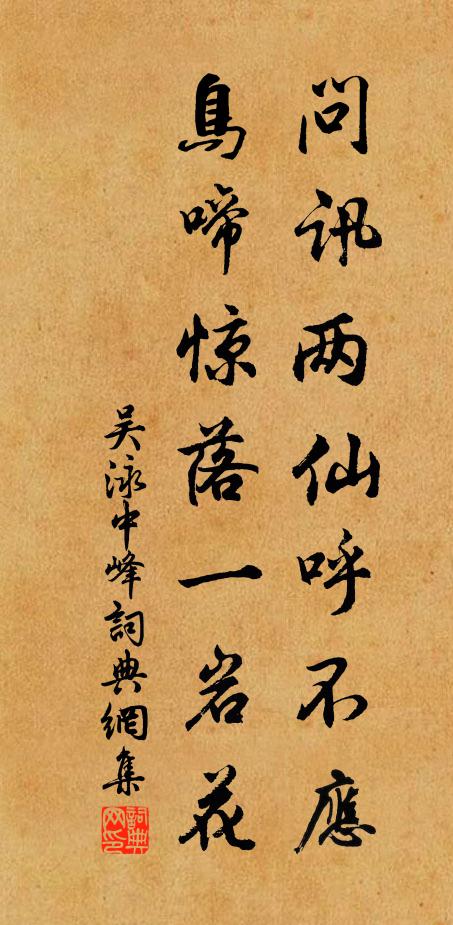 问讯两仙呼不應
鳥啼惊落一岩花
吴泳中峰詞典網集
詞典网印